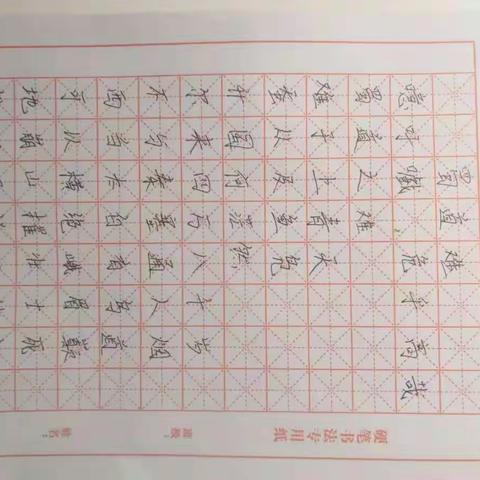 蜀道难
噫吁嚱 危乎高哉
蜀道之难
难于上青天
蚕丛及鱼凫
开国何茫然
尔来四万八千岁
不与秦塞通人烟
西当太白有鸟道
可以横绝峨眉巅
地崩山摧壮士死
硬笔书法专用纸
班级：
姓名：